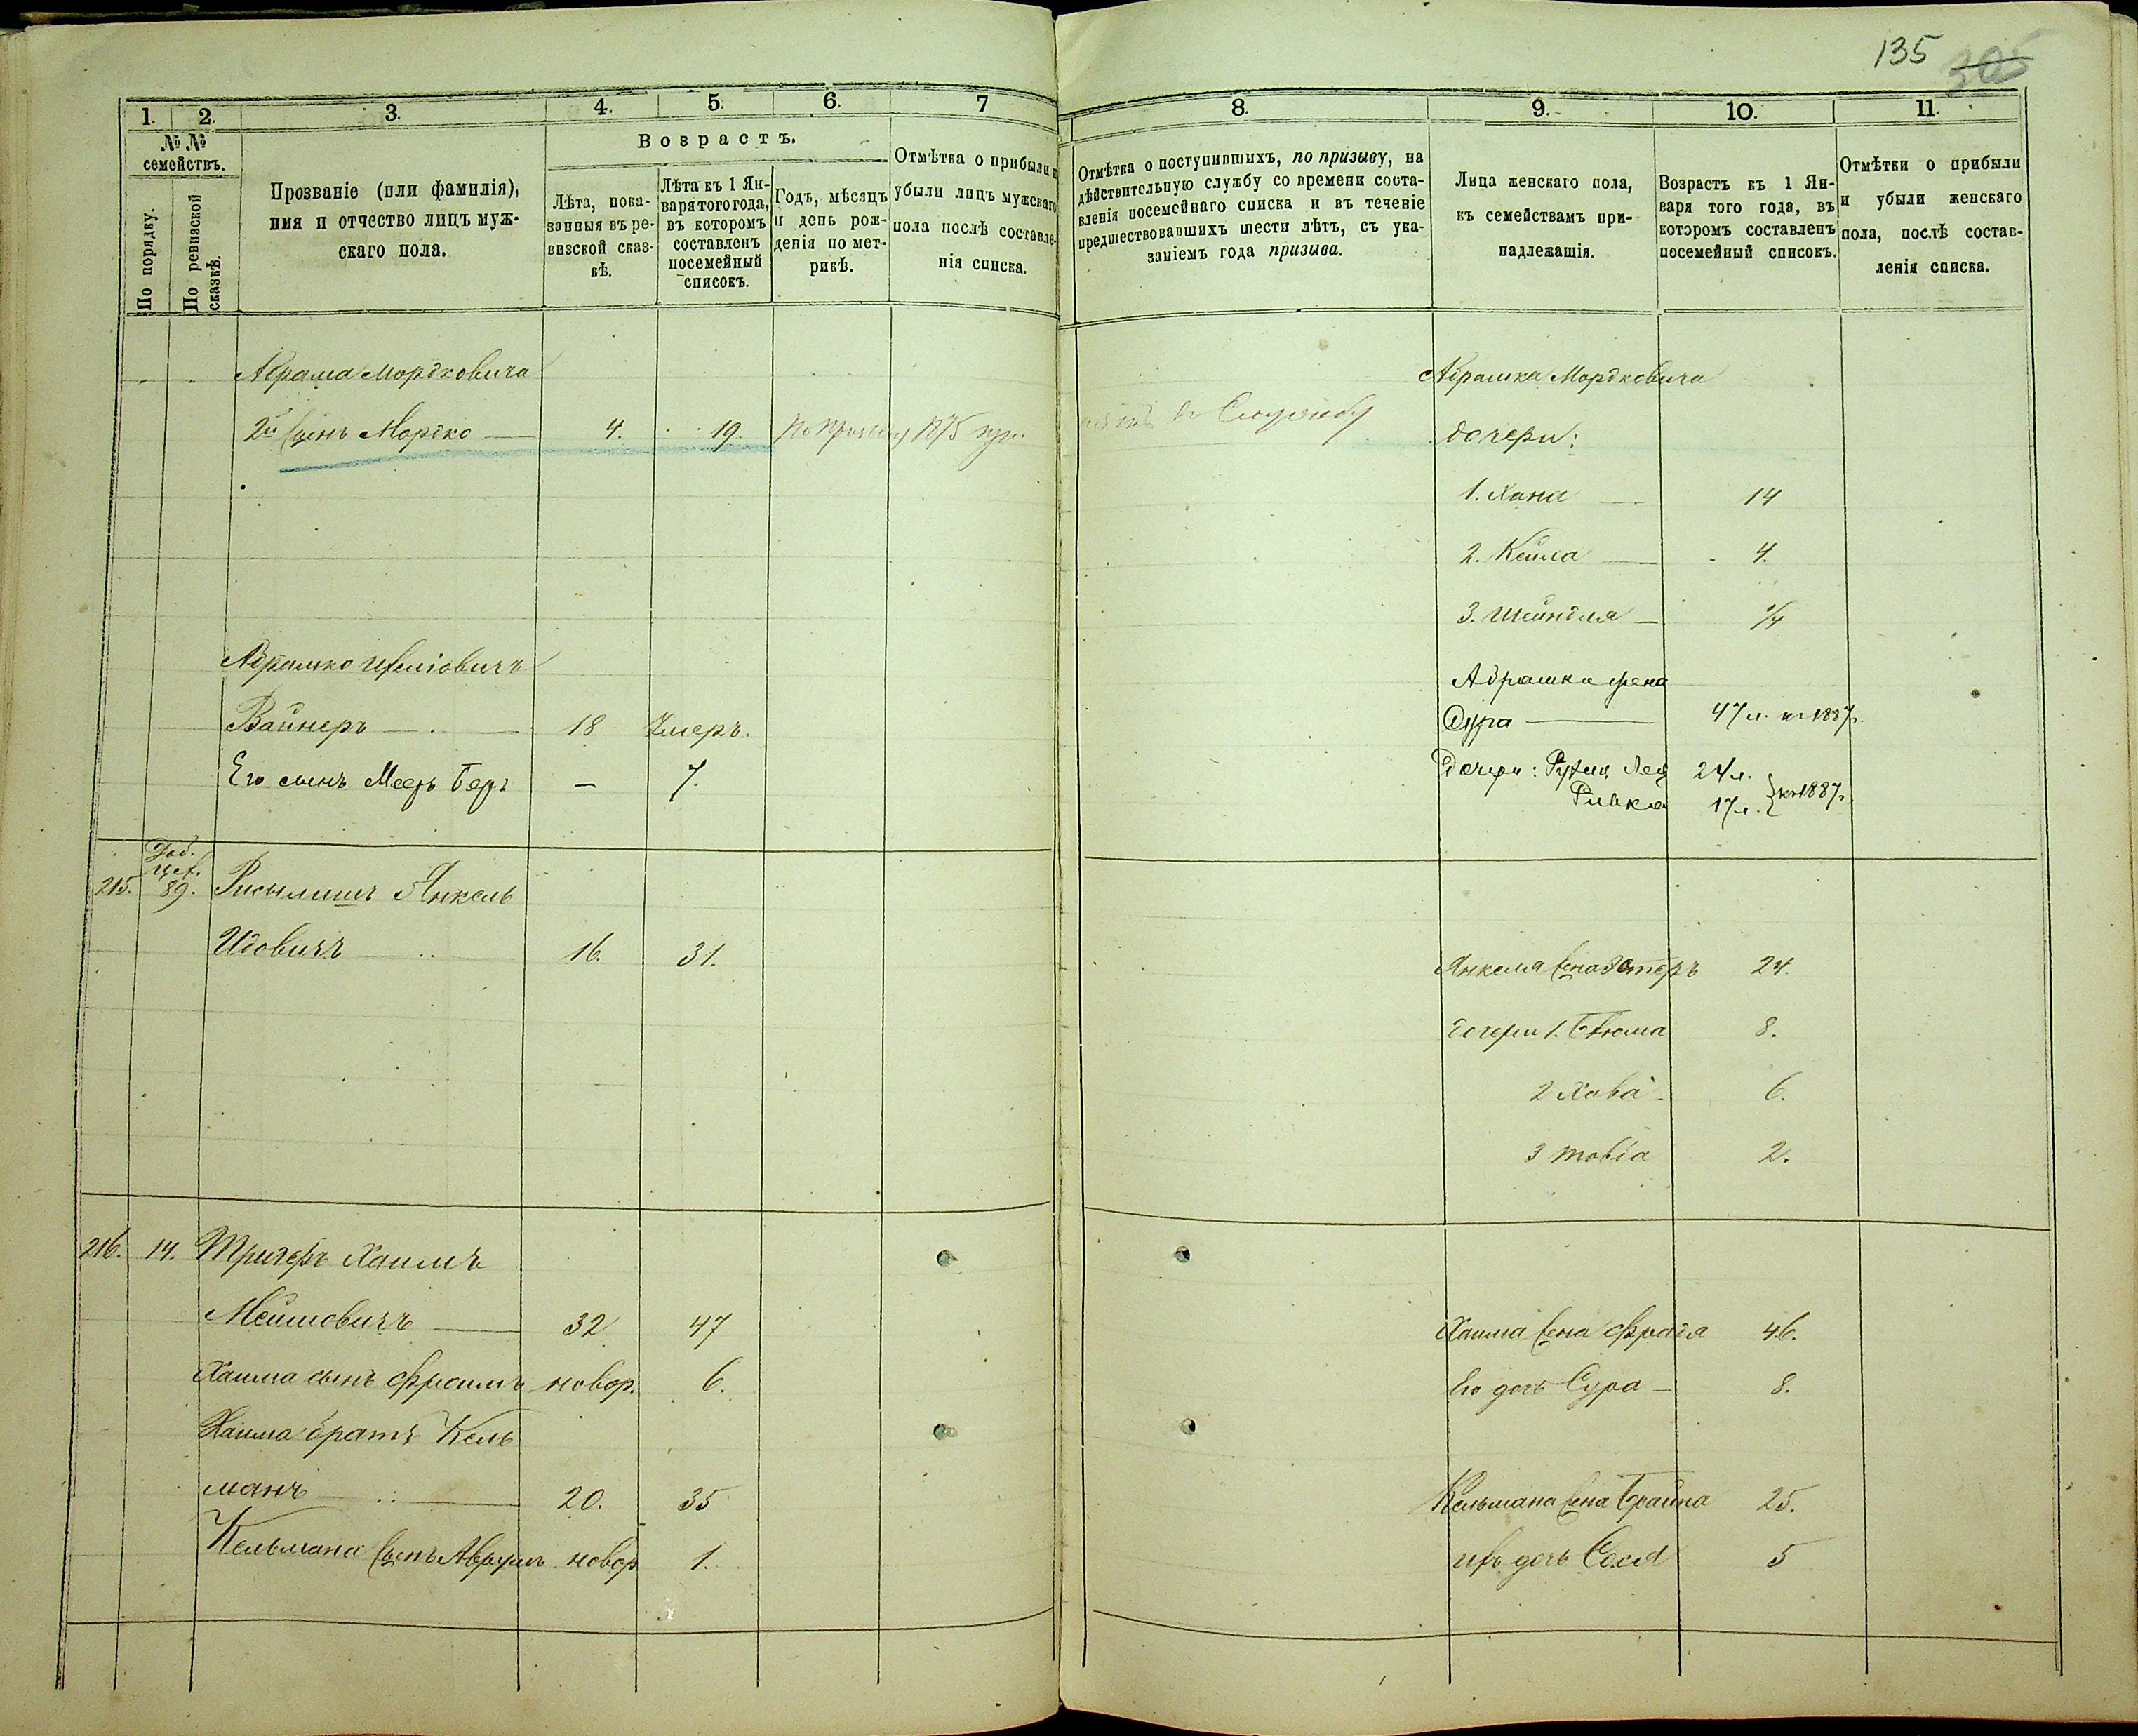 135 305
1. 2. 3. 4. 5. 6. 7
№ № семействъ.
По порядку.
По ревизской сказкѣ.
Прозваніе (или фамилія),
имя и отчество лицъ муж-
скаго пола.
Возрастъ.
Лѣта, пока-
занныя въ ре-
визской сказ-
кѣ.
Лѣта къ 1 Ян-
варя того года,
въ которомъ
составленъ
посемейный
списокъ.
Годъ, мѣсяцъ
и день рож-
денія по мет-
рикѣ.
Отмѣтка о прибыли и
убыли лицъ мужскаго
пола послѣ составле-
нія списка.
8. 9. 10. 11.
Отмѣтка о поступившихъ, по призыву, на
дѣйствительную службу со времени соста-
вленія посемейнаго списка и въ теченіе
предшествовавшихъ шести лѣтъ, съ ука-
заніемъ года призыва.
Лица женскаго пола,
къ семействамъ при-
надлежащія.
Возрастъ къ 1 Ян-
варя того года, въ
которомъ составленъ
посемейный списокъ.
Отмѣтки о прибыли
и убыли женскаго
пола, послѣ состав-
ленія списка.
Абрама Мордковича
2й Сынъ Мордко 4. 19. По призыву 1875 въ Службу
Абрамко
Вайнеръ 18 Умеръ.
Его сынъ Меер Бер 7.
Доб. 
215. 89. Янкель
Идовичъ 16. 31.
216. 14. Тригеръ Хаимъ
32 47
Хаима сынъ Фроимъ новор. 6.
Хаима братъ Кель
манъ 20. 35
Кельмана Сынъ Аврумъ новор 1.
Абрамка Мордковича
дочери:
1. Хана 14
2. Кейла 4.
3. Шейндля
Абрамки жена
Сура 47 л. къ 1887 г.
Дочери: Лея 24 л.
Ривка 17 л. } къ 1887 г.
Янкеля Жена Эстеръ 24.
Дочери 1. 8.
2 Хова 6.
3 Товіа 2.
Хаима Жена Фрада 46.
Его дочь Сура 8.
Кельмана Жена Брайна 25.
ихъ дочь Сося 5